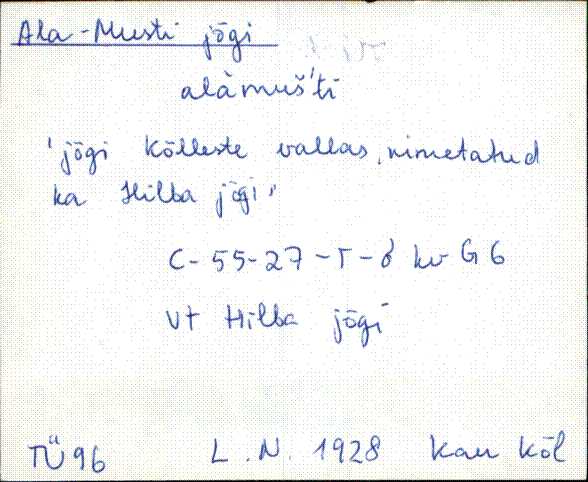 Ala-Musti jõgi
alàmuš'ti
'jõgi Kõlleste vallas, nimetatud
ka Hilba jõgi'
C-55-27-T-δ kv G6
vt Hilba jõgi
TÜ 96 L.N. 1928 Kan Kõl